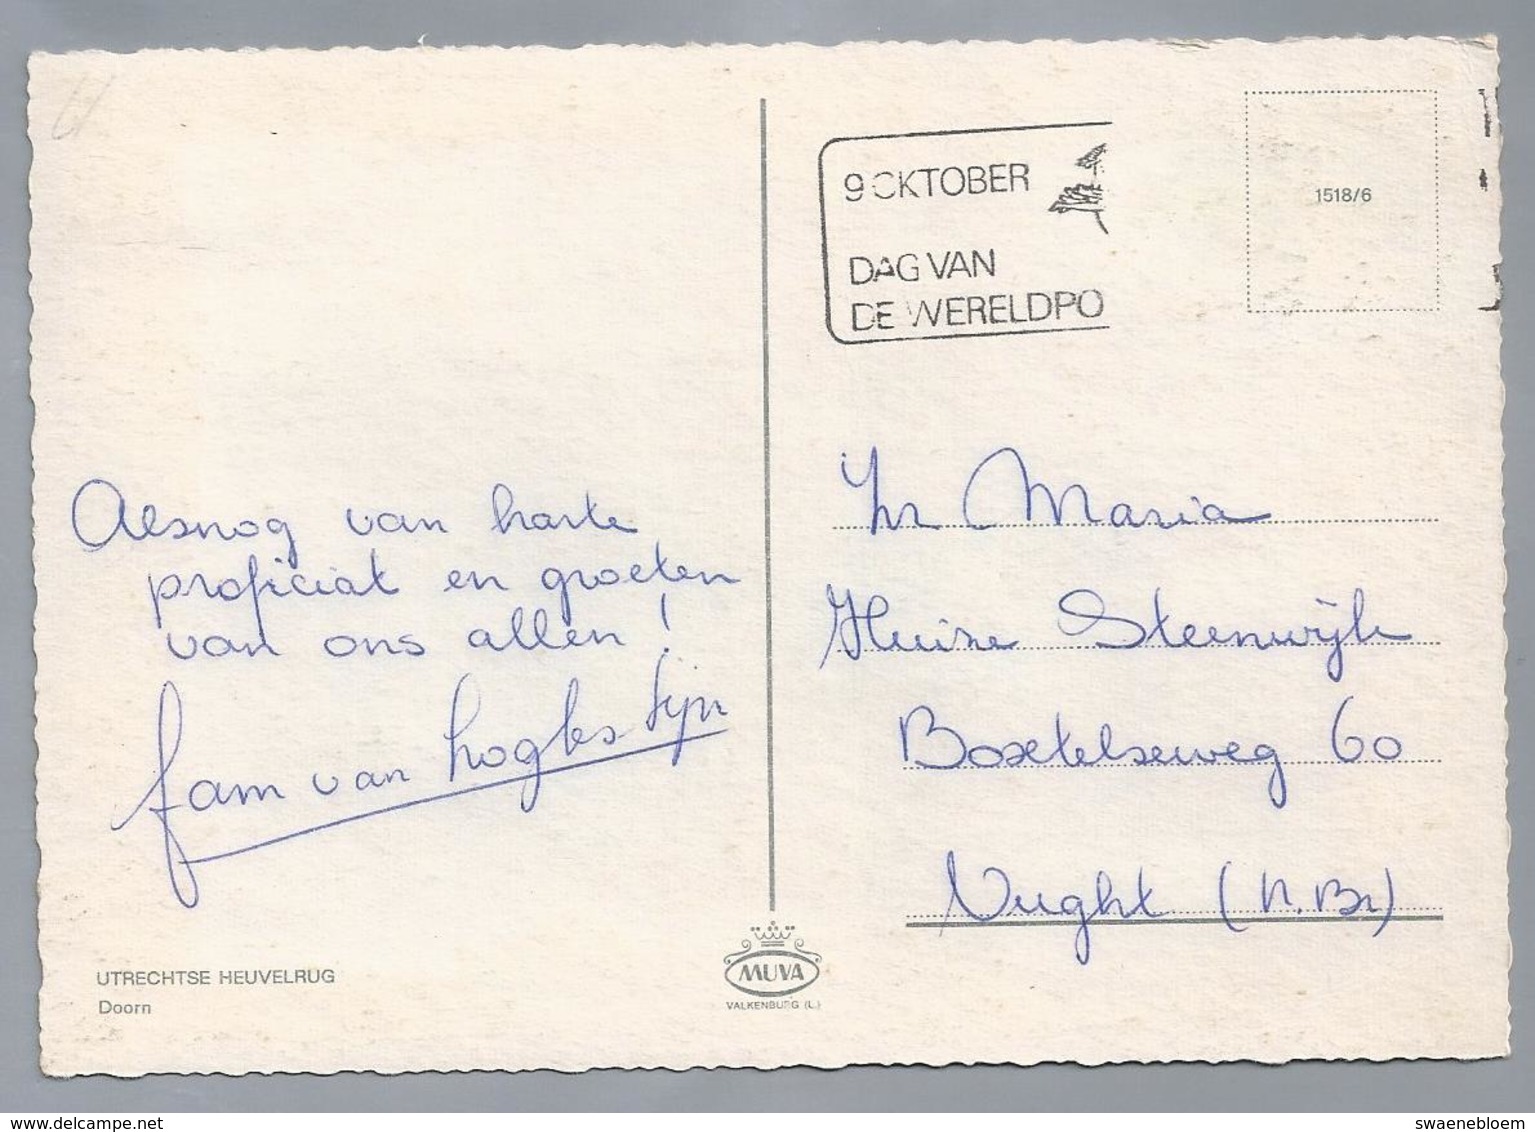 9 OKTOBER
DAG VAN
DE WERELDPO
1518/6
Alsnog van harte
proficiat en groeten
van ons allen!
fam van
Zr Maria
Huize Steenwijk
Boxtelseweg 60
Vught (N.Br)
UTRECHTSE HEUVELRUG
Doorn
MUVA
VALKENBURG (L.)
www.delcampe.net
swaenebloem